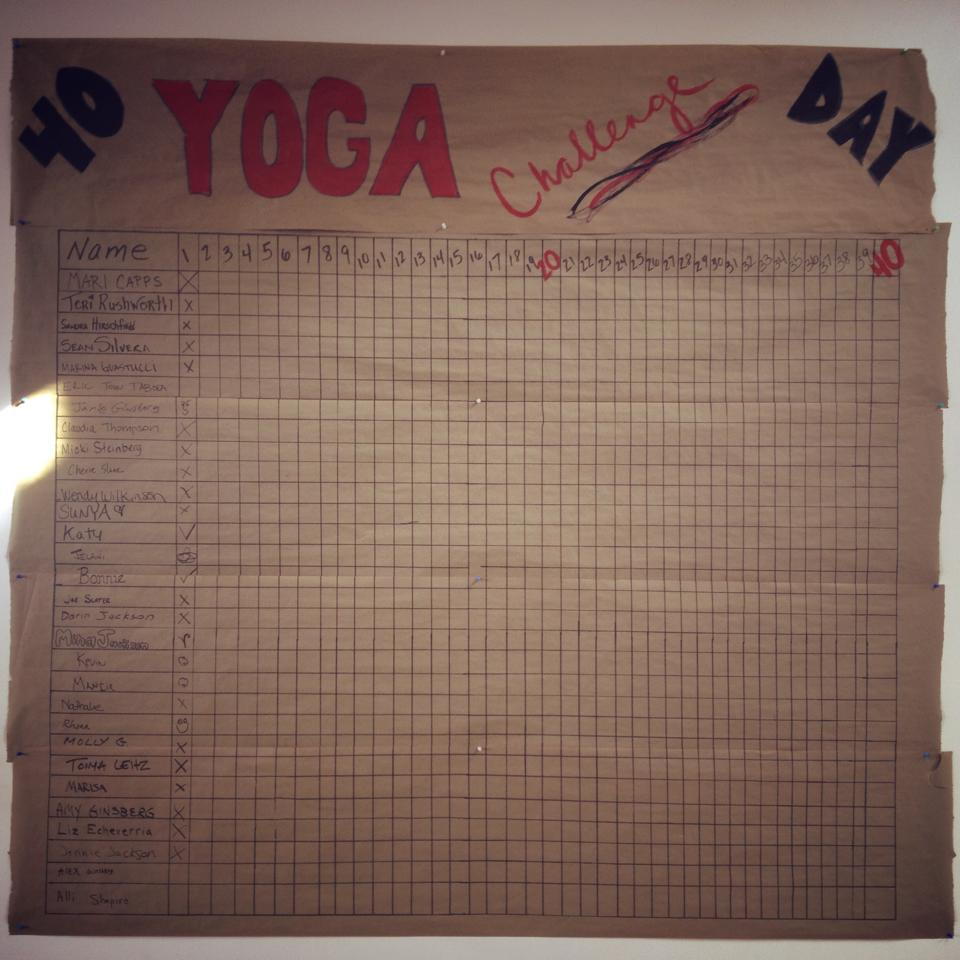 40 YOGA Challenge DAY
Name 1 2 3 4 5 6 7 8 9 10 11 12 13 14 15 16 17 18 19 20 21 22 23 24 25 26 27 28 29 30 31 32 33 34 35 36 37 38 39 40
MARI CAPPS X
TERI RUSHWORTH X
Sandra Hirschfield X
SEAN SILVERA X
MARINA GUASTUCCI X
ERIC
Jamie Ginsberg
Claudia Thompson X
Micki Steinberg X
Cherie X
Wendy Wilkinson X
SUNYA X
Katy
Bonnie
X
Darin Jackson X
Kevin
Nathalie X
MOLLY G. X
TONYA LEITZ X
MARISA X
AMY GINSBERG X
Liz Echeverria X
Jennie Jackson X
ALEX
Alli Shapiro